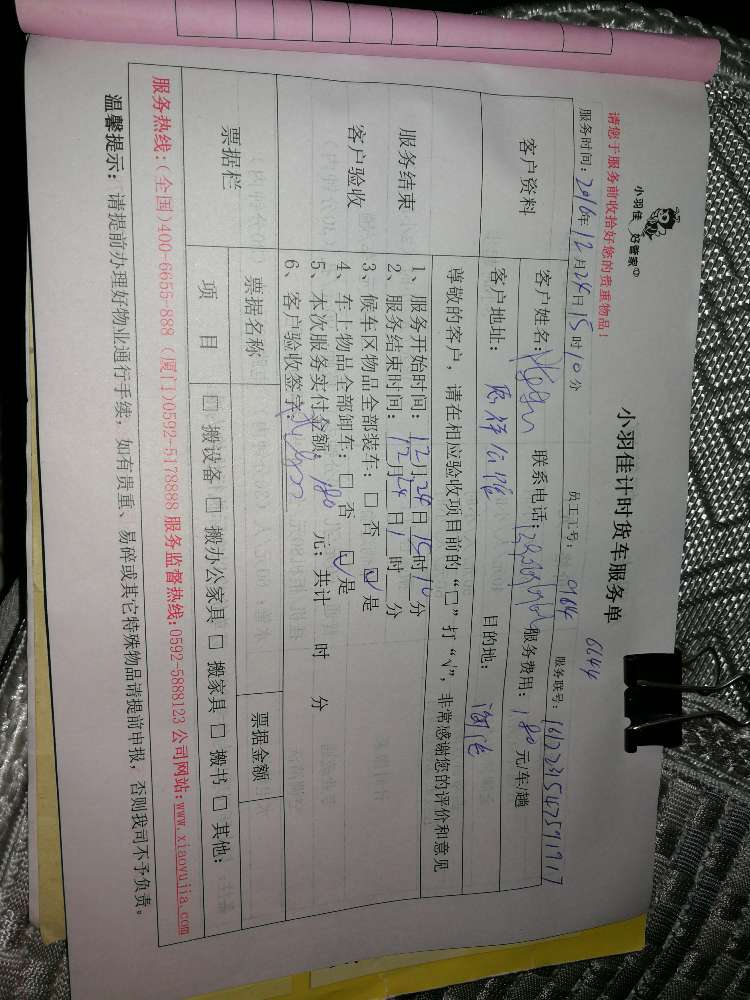 小羽佳 好管家
小羽佳计时货车服务单
6644
请您于服务前收拾好您的贵重物品！
服务时间：2016年12月24日15时10分 员工工号：9164 服务联号：
客户资料
客户姓名： 联系电话： 服务费用：180元/车/趟
客户地址： 目的地：
尊敬的客户，请在相应验收项目前的“□”打“√”，非常感谢您的评价和意见
服务结束
客户验收
1、服务开始时间：12月24日15时10分
2、服务结束时间：12月24日 时 分
3、候车区物品全部装车：□ 否 ☑ 是
4、车上物品全部卸车：□ 否 ☑ 是
5、本次服务实付金额：180 元；共计 时 分
6、客户验收签字：
票据栏
票据名称 票据金额
项 目 □ 搬设备 □ 搬办公家具 □ 搬家具 □ 搬书 □ 其他：
服务热线：(全国)400-6655-888 (厦门)0592-5178888 服务监督热线：0592-5888123 公司网站：www.xiaoyujia.com
温馨提示：请提前办理好物业通行手续，如有贵重、易碎或其它特殊物品请提前申报，否则我司不予负责。